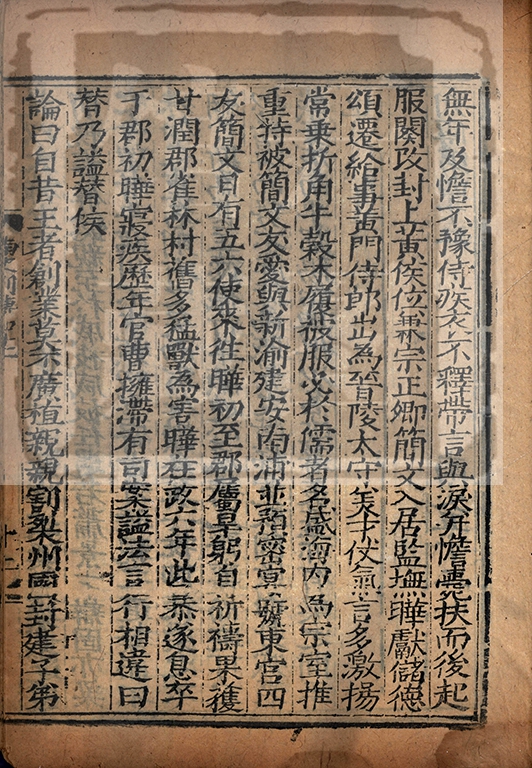 無年及憺不豫侍疾衣不釋帶言與淚并憺薨扶而後起
服闋改封上黃侯位兼宗正卿簡文入居監撫曄獻儲德
頌遷給事黃門侍郎出為晉陵太守美才仗氣言多激揚
常乗折角牛穀木履被服必於儒者名盛海内為宗室推
重特被簡文友愛與新渝建安南浦並預密宴號東宮四
友簡文日有五六使來往曄初至郡屬旱躬自祈禱果獲
甘潤郡雀林村舊多猛獸為害曄在政六年此暴遂息卒
于郡初曄寢疾歷年官曹擁滯有司案謚法言行相違曰
替乃謚替侯
論曰自昔王者創業莫不廣植親親割裂州國封建子弟
十二